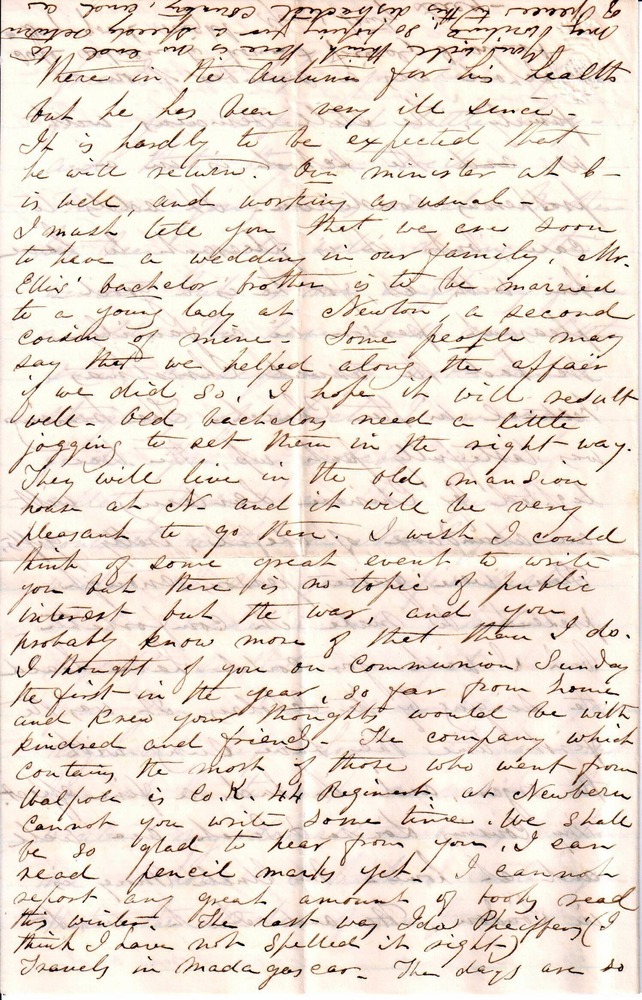 I have will think there is no end to
my so hoping for a speedy return
of peace to this distracted country, and
there in the Autumn for his health
but he has been very ill since -
It is hardly to be expected that
he will return. Our minister at B -
is well, and working as usual -
I must tell you that we are soon
to have a wedding in our family, Mr.
Ellis' bachelor brother is to be married
to a young lady at Newton, a second
cousin of mine - Some people may
say that we helped along the affair
if we did so, I hope it will result
well - Old bachelors need a little
jogging to set them in the right way.
They will live in the old mansion
house at N - and it will be very
pleasant to go there. I wish I could
think of some great event to write
you but there is no topic of public
interest but the war, and you
probably know more of that than I do.
I thought of you on Communion Sunday
the first in the year, so far from home
and knew your thoughts would be with
kindred and friends - The company which
contains the most of those who went from
Walpole is Co. K. 44 Regiment, at Newbern
cannot you write some time. We shall
be so glad to hear from you, I can
read pencil marks yet - I cannot
report any great amount of books read
this winter. The last was Ida Pheiffers' (I
think I have not spelled it right)
Travels in Madagascar - The days are so